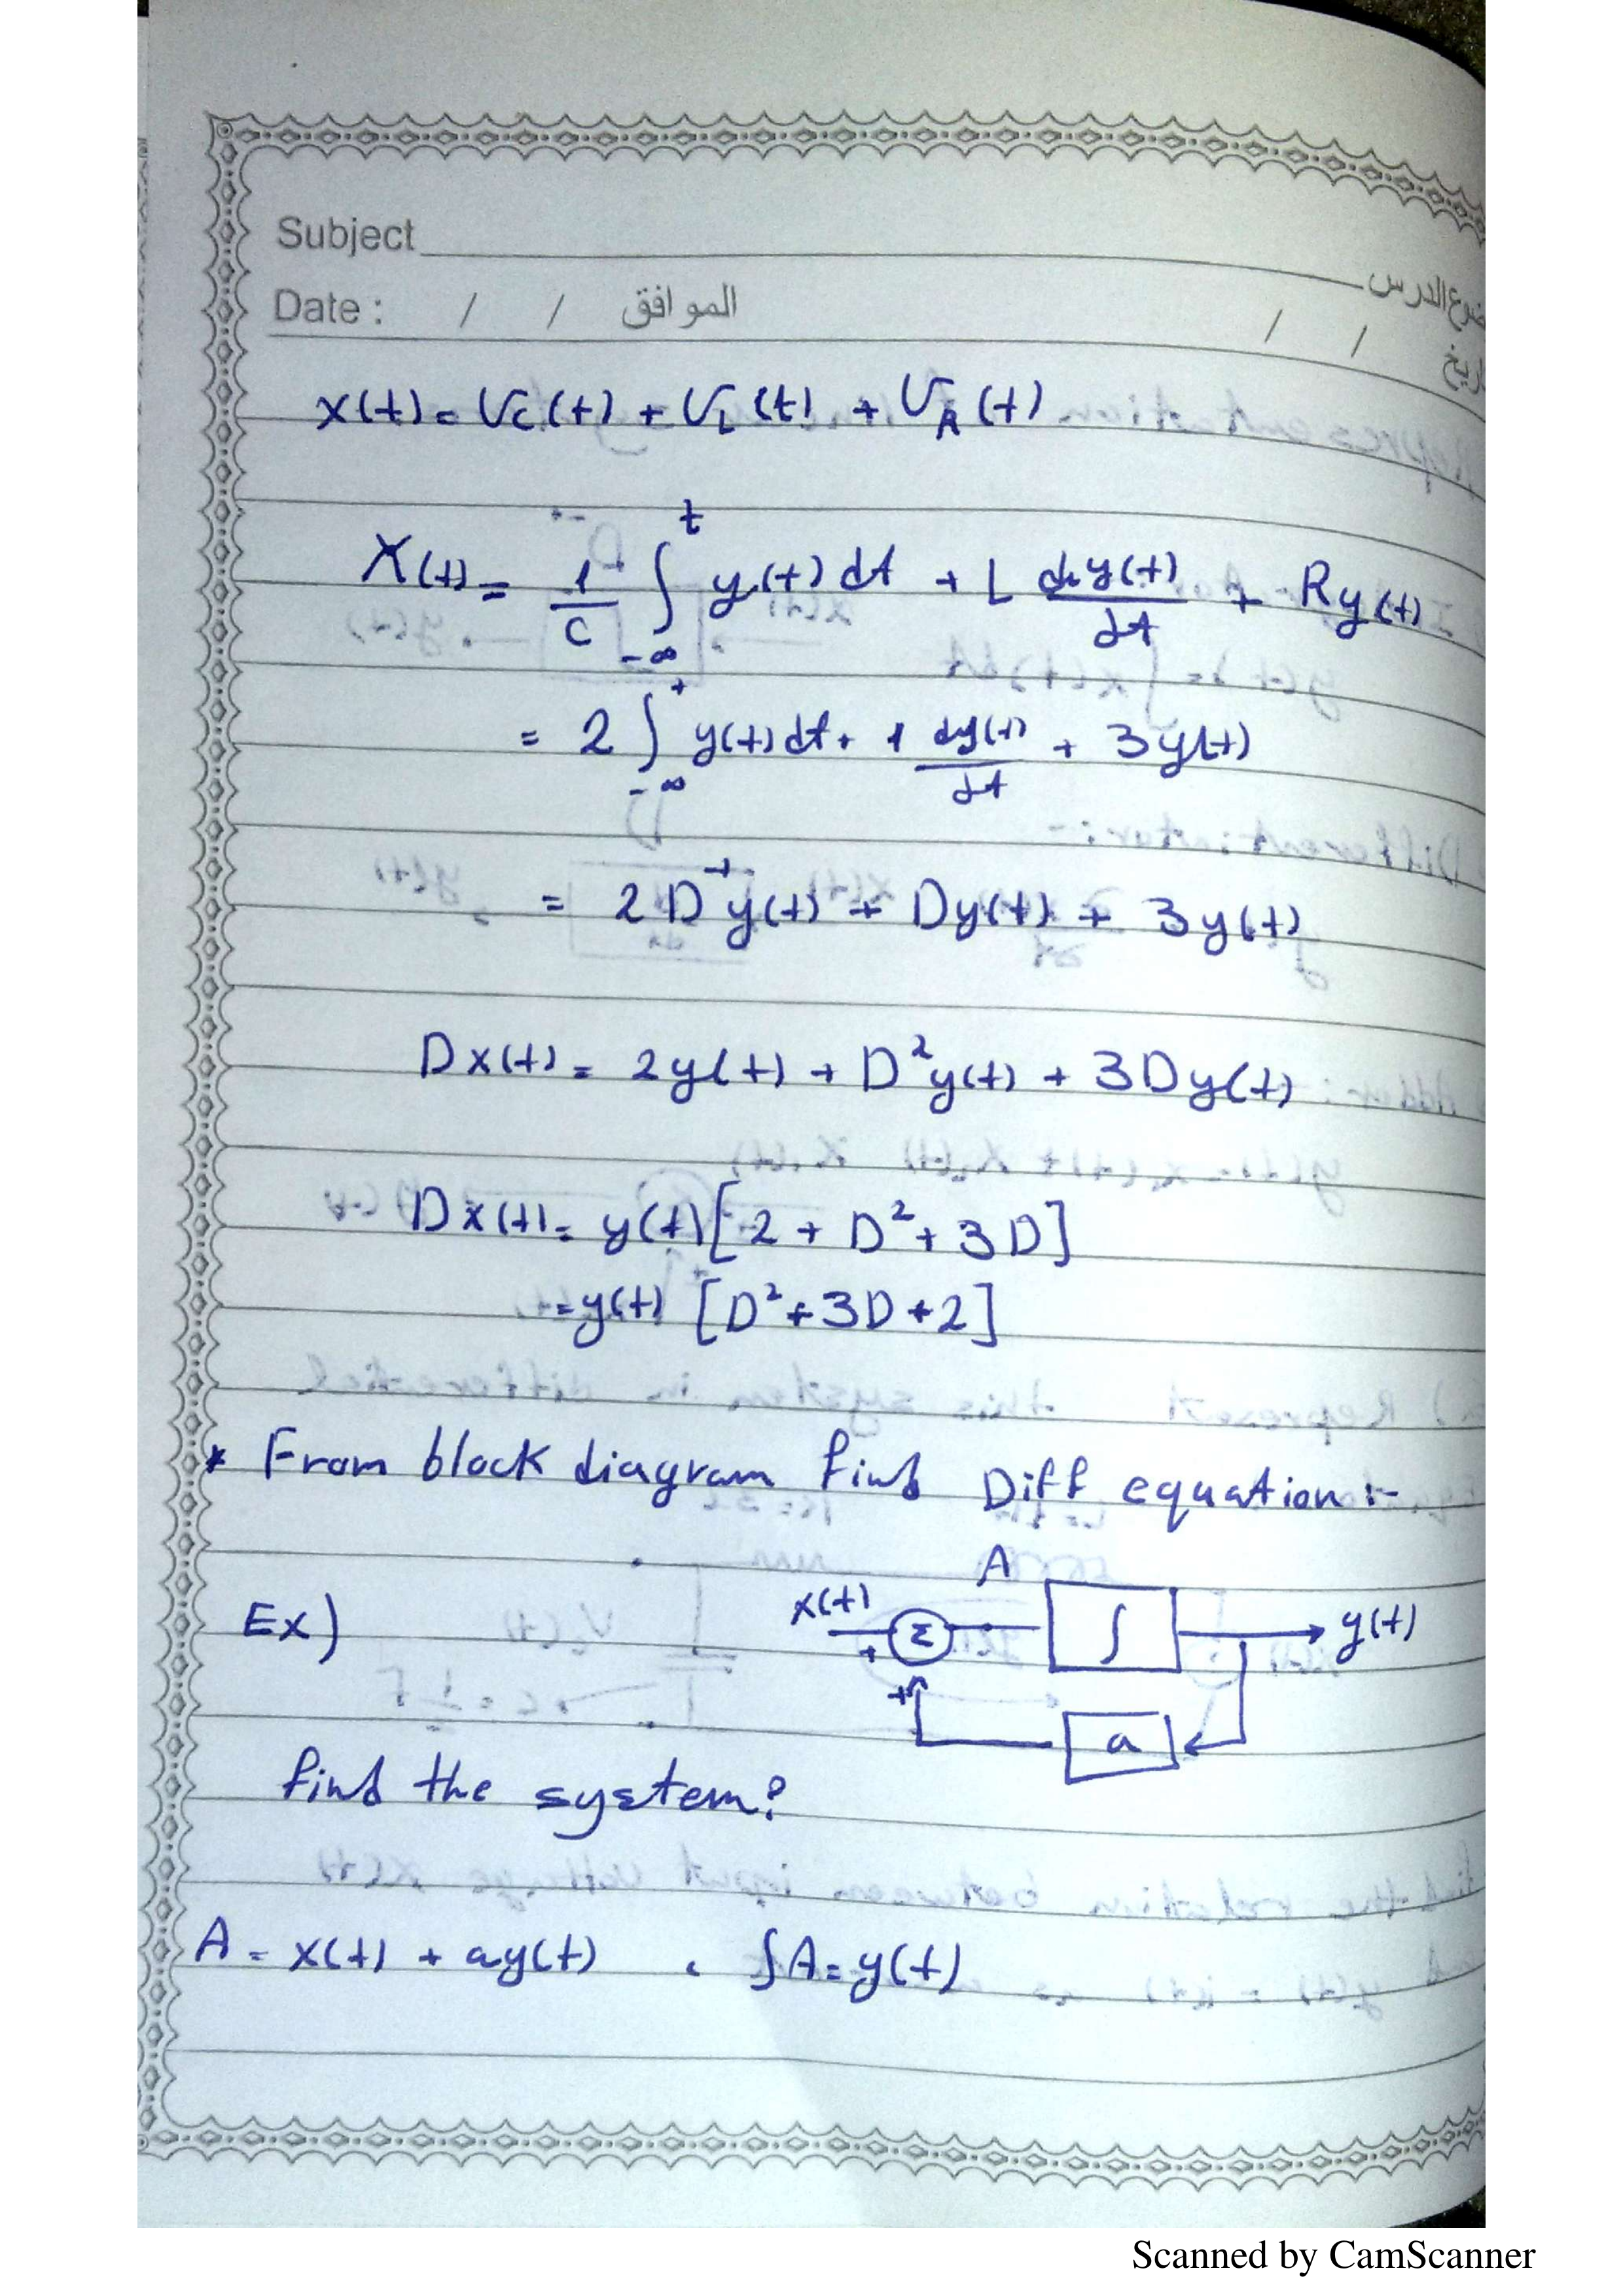 Subject
موضوع الدرس
Date : / / الموافق
/ /
x(t) = Vc(t) + VL(t) + VR(t)
X(t) = 1/C ∫_{-∞}^{t} y(t) dt + L dy(t)/dt + Ry(t)
= 2 ∫_{-∞}^{t} y(t) dt + 1 dy(t)/dt + 3y(t)
= 2D⁻¹y(t) + Dy(t) + 3y(t)
Dx(t) = 2y(t) + D²y(t) + 3Dy(t)
Dx(t) = y(t)[2 + D² + 3D]
= y(t) [D² + 3D + 2]
* From block diagram find Diff equation :-
Ex)
A
x(t) + Σ ∫ y(t)
+ a
find the system?
A = x(t) + ay(t) , ∫A = y(t)
Scanned by CamScanner